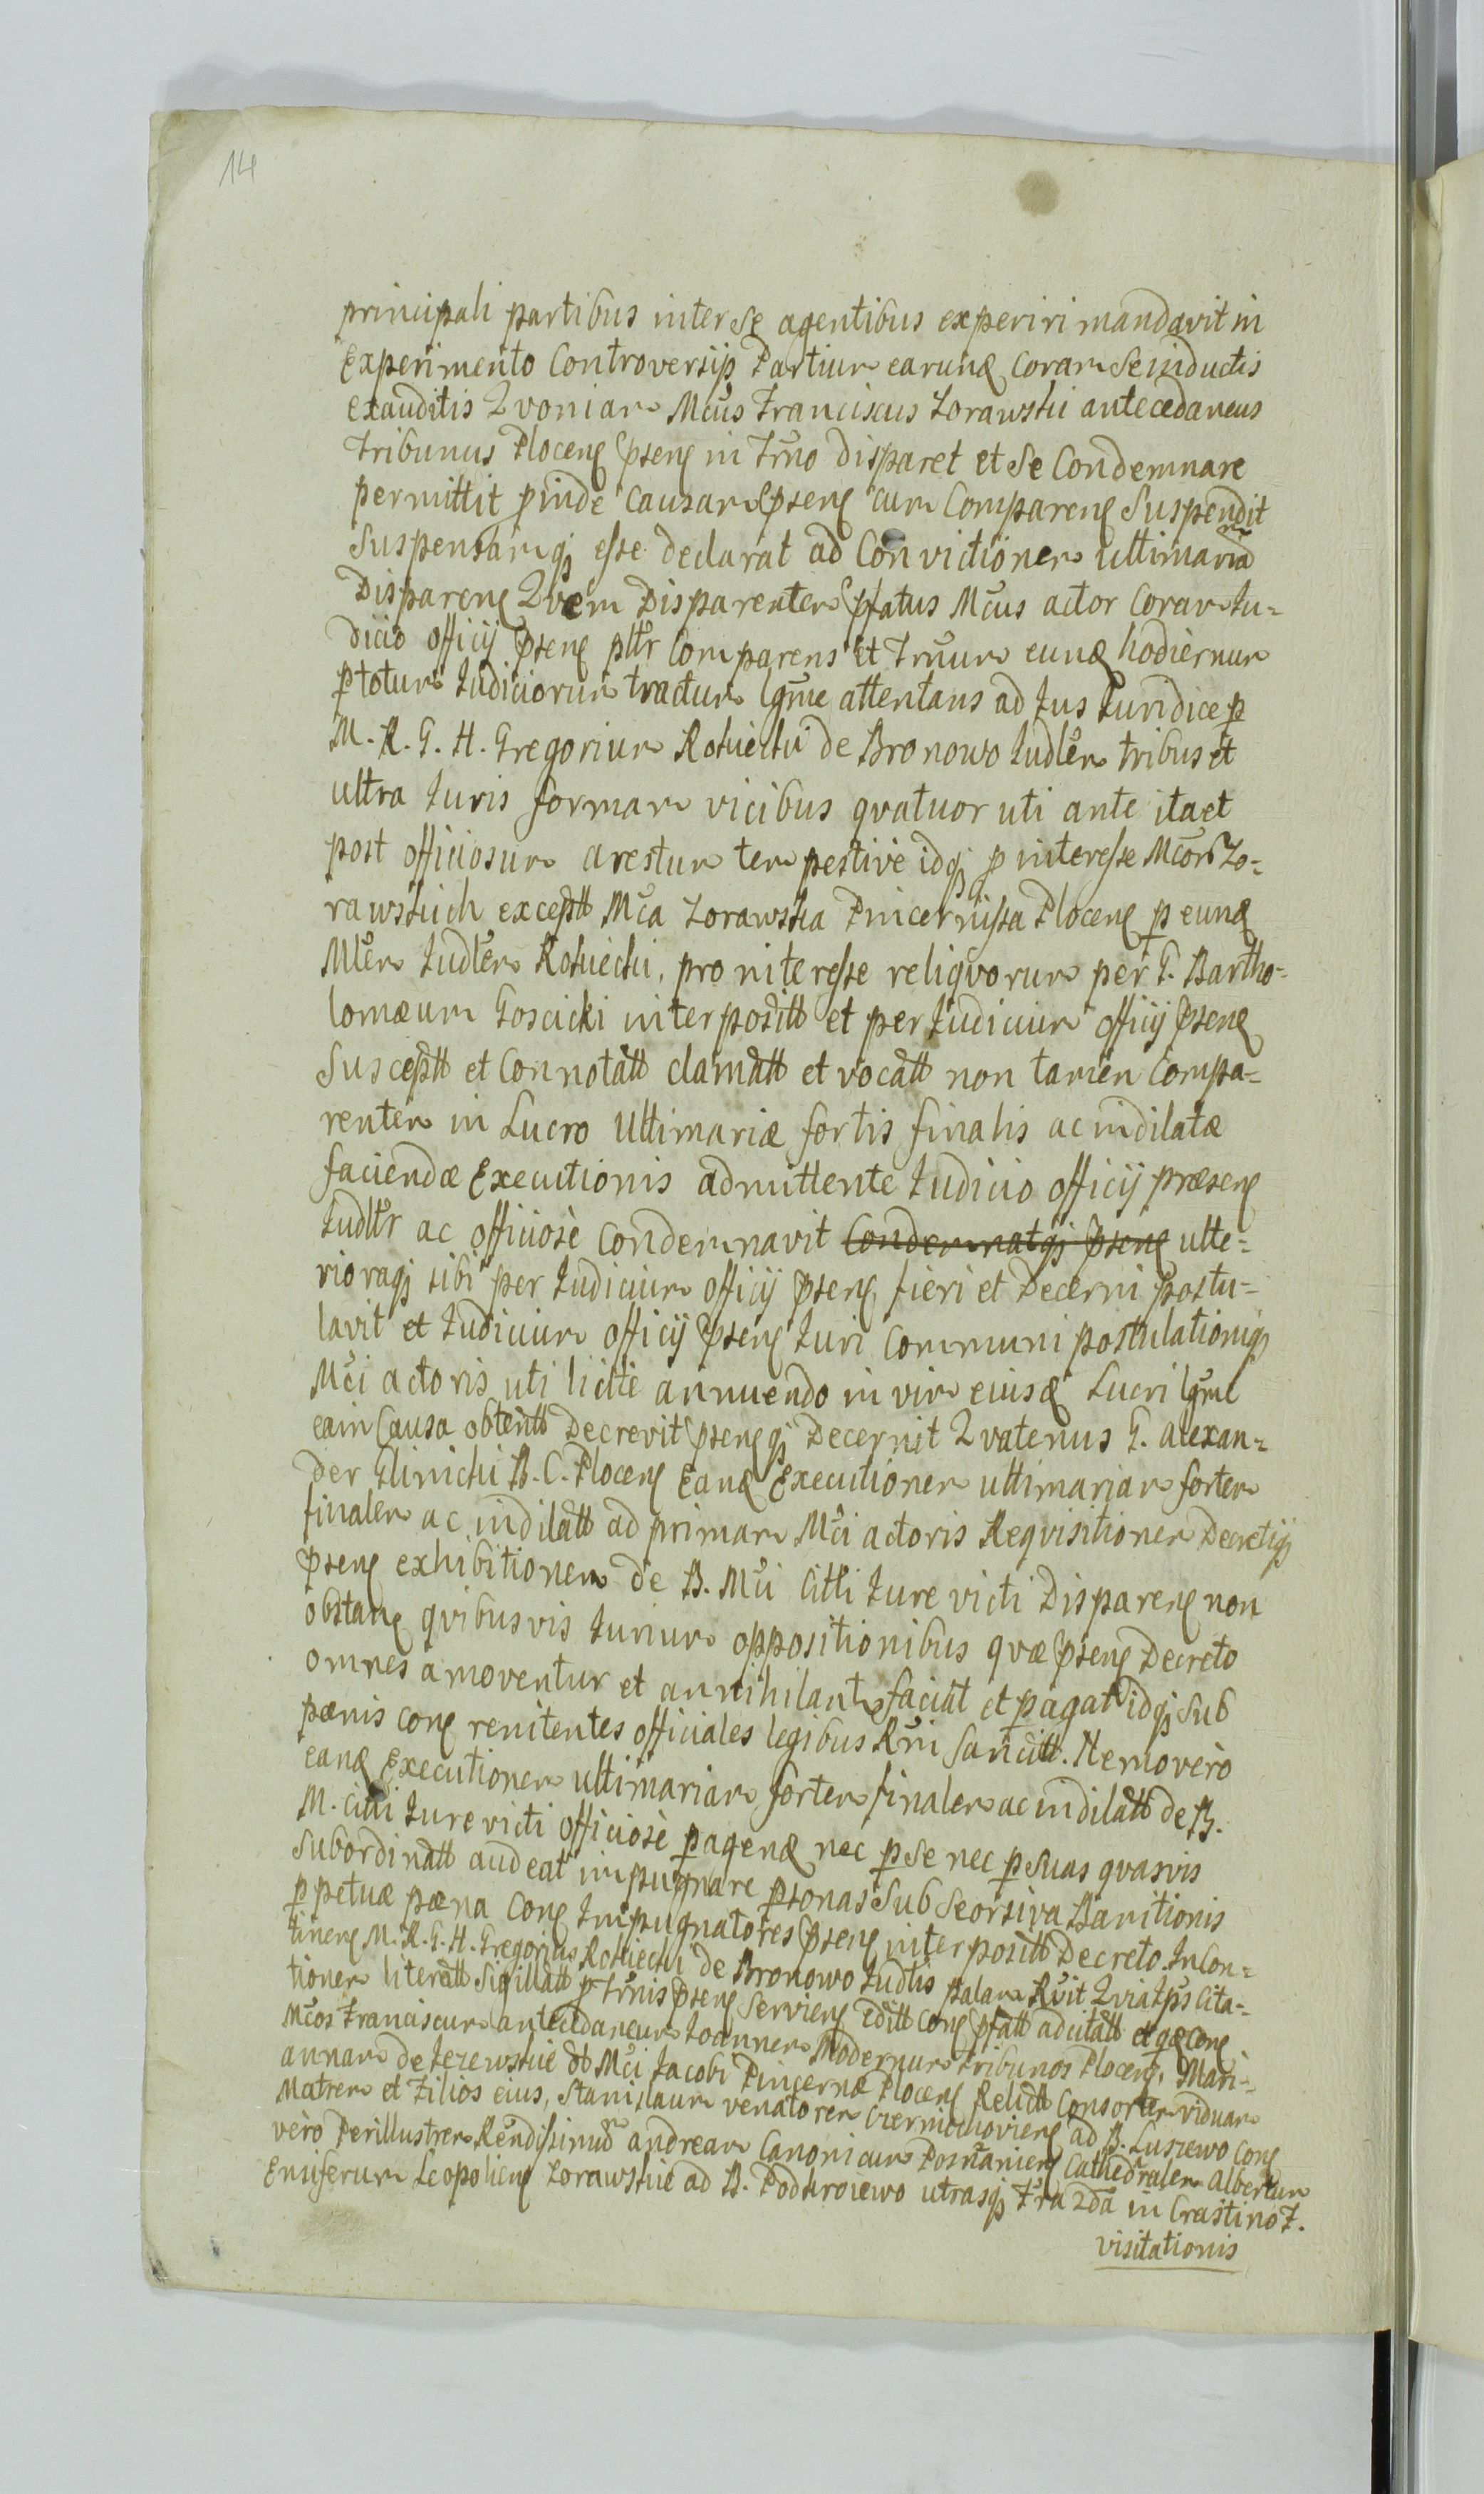 14
principali partibus inter se agentibus experiri mandavit in
Experimento Controversijs Partium earund Coram Se inductis
exauditis Qvoniam Mcus Franciscus Zorawski antecedaneus
Tribunus Plocens psens in Trno disparet et Se Condemnare
permittit pinde Causam pseng cum Compareng Suspendit
Suspensamqj esse declarat ad Convictionem ultimariam
Dispareng Qvem Disparentem pfatus Mcus actor Coram Ju-
dicio officij pseng pltr Comparens et Trnum eund hodiernum
p totum Judiciorum tractum lgme attentans ad Jus Juridice p
M. R. G. H. Gregorium Rokicki de Bronowo Judlem tribus et
ultra Juris formam vicibus qvatuor uti ante ita et
post officiosum arestum tempestive idqj p interesse Mcor Zo-
rawskich exceptt Mca Zorawska Pincernissa Ploceng p eund
Mlem Judlem Rokicki, pro interesse reliqvorum per G. Bartho-
lomæum Goscicki interpositt et per Judicium officij pseng
Susceptt et Connotatt clamatt et vocatt non tamen Compa-
rentem in Lucro Ultimariæ fortis finalis ac indilatæ
faciendæ Executionis admittente Judicio officij præseng
Judltr ac officiosè Condemnavit Condemnatqj pseng ulte-
rioraqj sibi per Judicium officij pseng fieri et Decerni postu-
lavit et Judicium officij pseng Juri Communi postulationiqj
Mci actoris uti licite annuendo in vim eiusd Lucri lgme
ea in Causa obtentt Decrevit psengqj Decernit Qvatenus G. Alexan-
der Glinicki B. C. Ploceng Eand Executionem ultimariam fortem
finalem ac indilatt ad primam Mci actoris Reqvisitionem Decretiqj
pseng exhibitionem de B. Mci Citti Jure victi Dispareng non
obstang qvibusvis Jurium oppositionibus qvæ pseng Decreto
omnes amoventur et annihilantr faciat et pagat idqj sub
pænis cong renitentes officiales legibus Rni Sancitt. Nemo verò
eand Executionem ultimariam fortem finalem ac indilatt de B.
M. Citti Jure victi officiosè pagend nec p se nec p suas qvasvis
subordinatt audeat impugnare psonas Sub Seorsiva Banitionis
ppetuæ pæna Cong Impugnatores pseng interpositt Decreto. In Con-
tineng M. R. G. H. Gregorius Rokicki de Bronowo Judlis palam Rvit Qvia Ips Cita-
tionem literatt Sigillatt p Trnis pseng Servieng editt Cong pfatt ad citatt et qæ Cong
Mcos Franciscum antecedaneum Joannem Modernum Tribunos Ploceng, Mari-
annam de Jezewskie olt Mci Jacobi Pincernæ Ploceng Relictt Consortem viduam
Matrem et Filios eius, Stanislaum venatorem Czerniechovieng ad B. Luszewo Cong
verò Perillustrem Rendissimum Andream Canonicum Posnanieng Cathedralem Albertum
Ensiferum Leopolieng Zorawskie ad B. Podkroiewo utrasqj Fra 2da in Crastino F.
visitationis